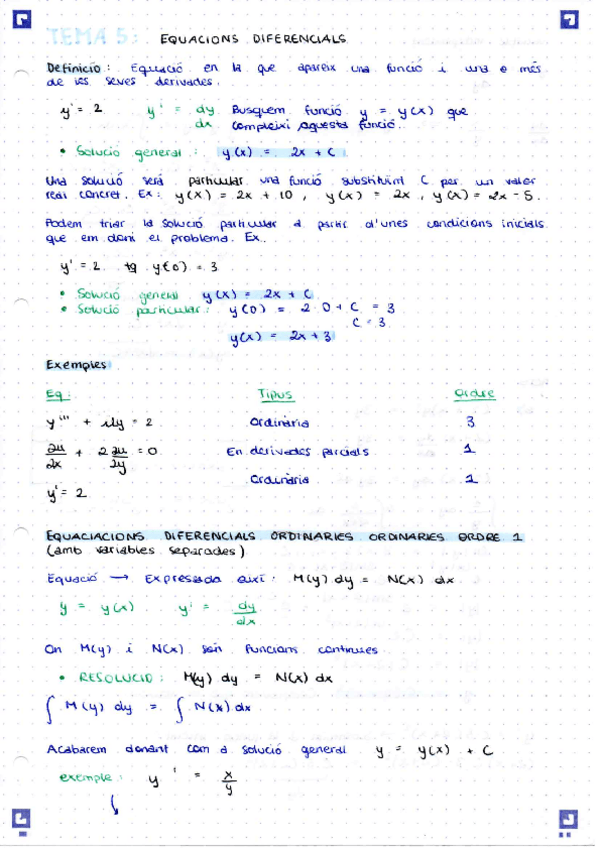 TEMA 5: EQUACIONS DIFERENCIALS
Definició: Equació en la que apareix una funció i una o més
de les seves derivades.
y' = 2 y' = dy/dx Busquem funció y = y(x) que
compleixi aquesta funció.
• Solució general: y(x) = 2x + C
Una solució serà particular una funció substituint C per un valor
real concret. Ex: y(x) = 2x + 10, y(x) = 2x, y(x) = 2x - 5.
Podem triar la solució particular a partir d'unes condicions inicials
que em doni el problema. Ex.
y' = 2 tq y(0) = 3
• Solució general y(x) = 2x + C
• Solució particular: y(0) = 2·0 + C = 3
C = 3
y(x) = 2x + 3
Exemples
Eq: Tipus Ordre
y''' + 2y = 2 Ordinària 3
∂u/∂x + 2 ∂u/∂y = 0 En derivades parcials 1
y' = 2 Ordinària 1
EQUACIACIONS DIFERENCIALS ORDINARIES ORDINARIES ORDRE 1
(amb variables separades)
Equació → Expressada així: M(y) dy = N(x) dx
y = y(x) y' = dy/dx
On M(y) i N(x) són funcions contínues
• RESOLUCIÓ: M(y) dy = N(x) dx
∫ M(y) dy = ∫ N(x) dx
Acabarem donant com a solució general y = y(x) + C
exemple: y' = x/y